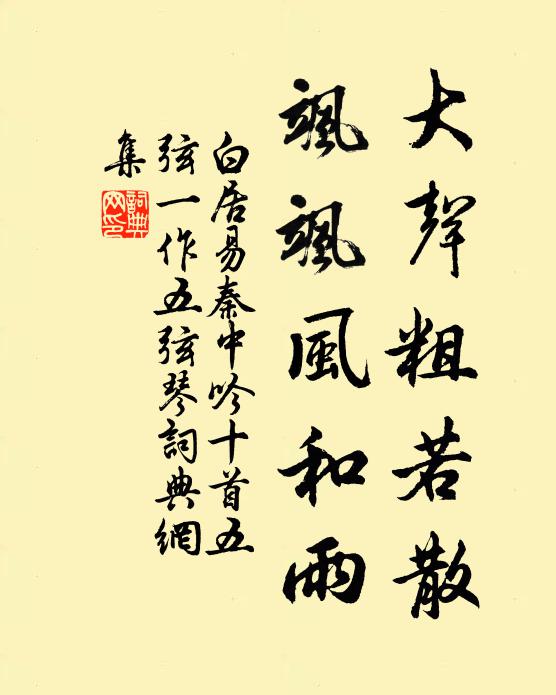 大聲粗若散
颯颯風和雨
白居易秦中吟十首五
弦一作五弦琴詞典網
集
詞典網印